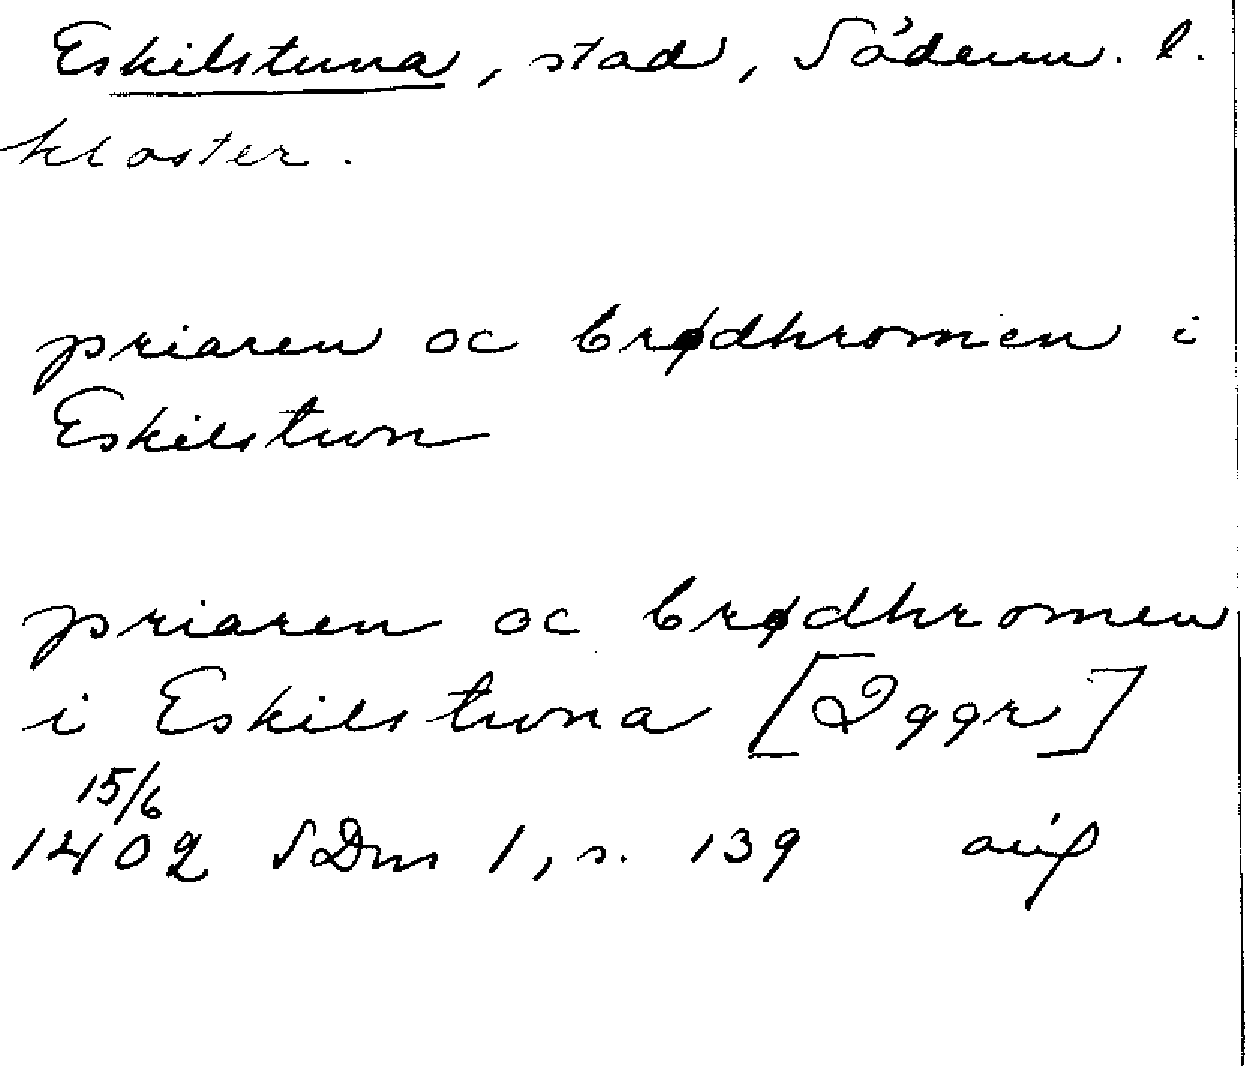 Eskilstuna, stad, Söderm. l.
kloster.
priaren oc brødhromen i
Eskilstwn
priaren oc brødhromen
i Eskilstwna [2ggr]
15/6
1402 SDns 1, s. 139